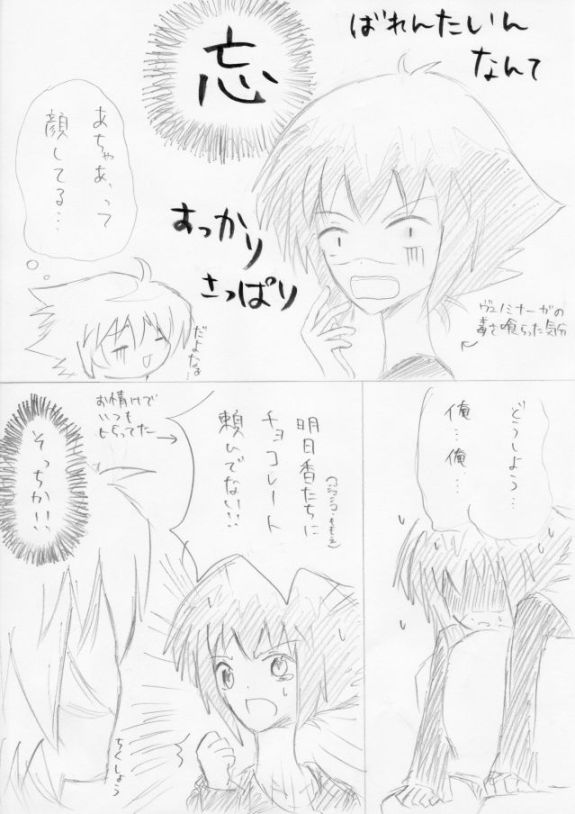 ばれんたいん
なんて
忘
すっかり
さっぱり
あちゃあ、って
顔してる…
だよなぁ…
ヴェノミナーガの
毒を喰らった気分
どうしよう…
俺…俺…
明日香たちに
チョコレート
頼んでない!!
お情けで
いつも
もらってた
そっちか!!
ちくしょう